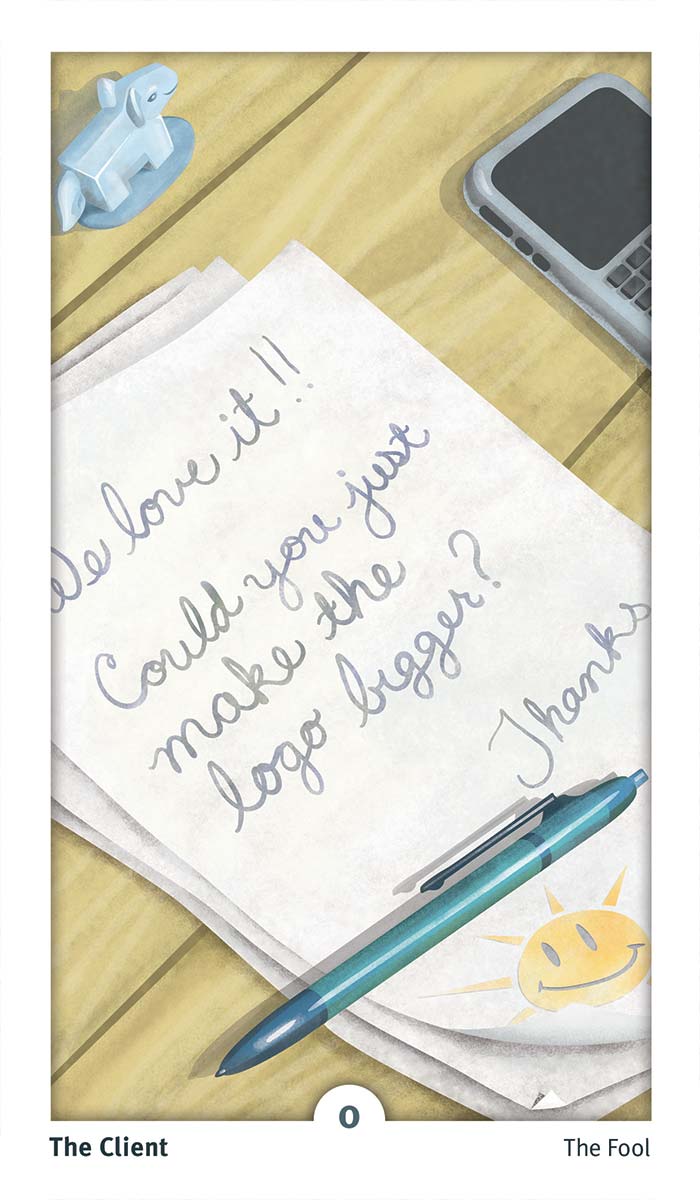 We love it!!
Could you just
make the
logo bigger?
Thanks
0
The Client
The Fool